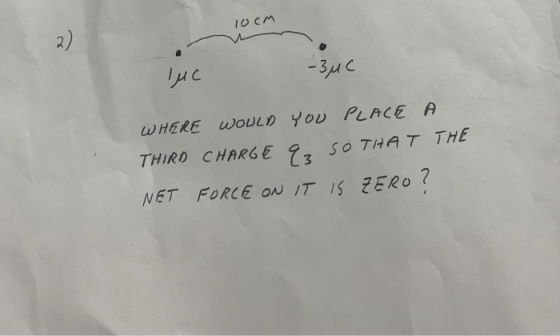 2)
10 CM
1μC
-3μC
WHERE WOULD YOU PLACE A
THIRD CHARGE q3 SO THAT THE
NET FORCE ON IT IS ZERO?